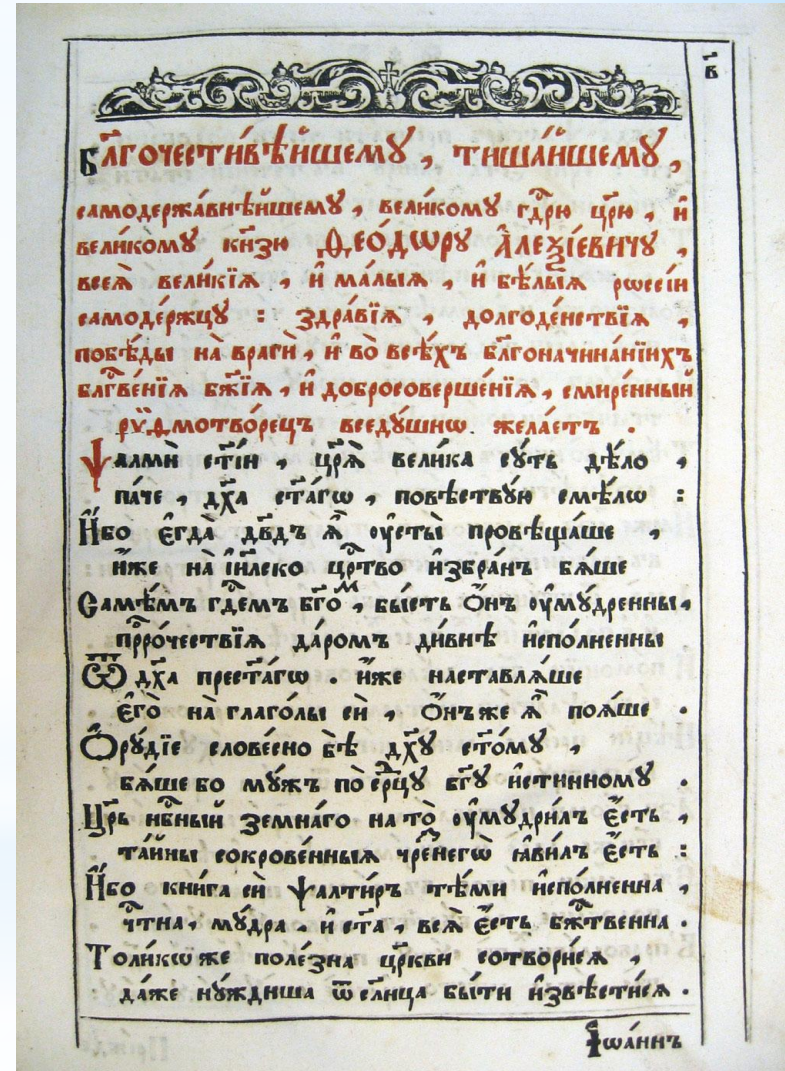 в҃
Бл҃гочести́вѣйшему , тиша́йшему ,
самодержа́внѣйшему , вели́кому гд҃рю цр҃ю , и҆
вели́кому кн҃зю Ѳео́дѡру А҆леѯі́евичу ,
всеѧ̀ вели́кїѧ , и҆ ма́лыѧ , и҆ бѣ́лыѧ рѡссі́и
самоде́ржцу : здра́вїѧ , долгоде́нствїѧ ,
побѣ́ды на̀ враги̑ , и҆ во̀ всѣ́хъ бл҃гоначина́нїихъ
бл҃гве́нїѧ бж҃їѧ , и҆ добросоверше́нїѧ , смире́нный
риѳмотво́рецъ вседꙋ́шнѡ жела́етъ .
Ѱалмѝ ст҃і́и , цр҃ѧ̀ вели́ка сꙋ́ть дѣ́ло ,
па́че , дх҃а ст҃а́гѡ , повѣ́ствꙋю смѣ́лѡ :
И҆́бо є҆гда̀ дв҃дъ ѧ҆̀ ᲂу҆сты̀ провѣща́ше ,
и҆́же на̀ і҆и҃леко цр҃тво и҆збра́нъ бѧ́ше
Самѣ́мъ гд҃емъ бг҃о́м , бы́сть ѻ҆́нъ ᲂу҆мꙋ́дренны ,
прⷪ҇ро́чествїѧ да́ромъ ди́внѣ и҆спо́лненны
Ѿ дх҃а прест҃а́гѡ . и҆́же наставлѧ́ше
є҆го̀ на̀ глаго́лы сѝ , ѻ҆́нъже ѧ҆̀ поѧ́ше .
Ѻ҆рꙋ́дїе слове́сно бѣ̀ дх҃ꙋ ст҃о́мꙋ ,
бѧ́ше бо мꙋ́жъ по̀ срⷣцꙋ бг҃ꙋ и҆́стинномꙋ .
Цр҃ь нб҃ный земна́го на то̀ ᲂу҆мꙋ́дрилъ є҆́сть ,
та́йны сокрове́нныѧ чре́знегѡ̀ ꙗ҆ви́лъ є҆́сть :
И҆́бо кни́га сѝ ѱалти́ръ тѣ́ми и҆спо́лненна ,
чⷭ҇тна , мꙋ́дра , и҆ ст҃а , всѧ̀ є҆́сть бж҃твенна .
Толи́кѡ же поле́зна цр҃кви сотвори́сѧ ,
да́же нꙋ́ждиша ѿ сл҃нца бы́ти и҆звѣсти́сѧ .
І҆ѡа́ннъ